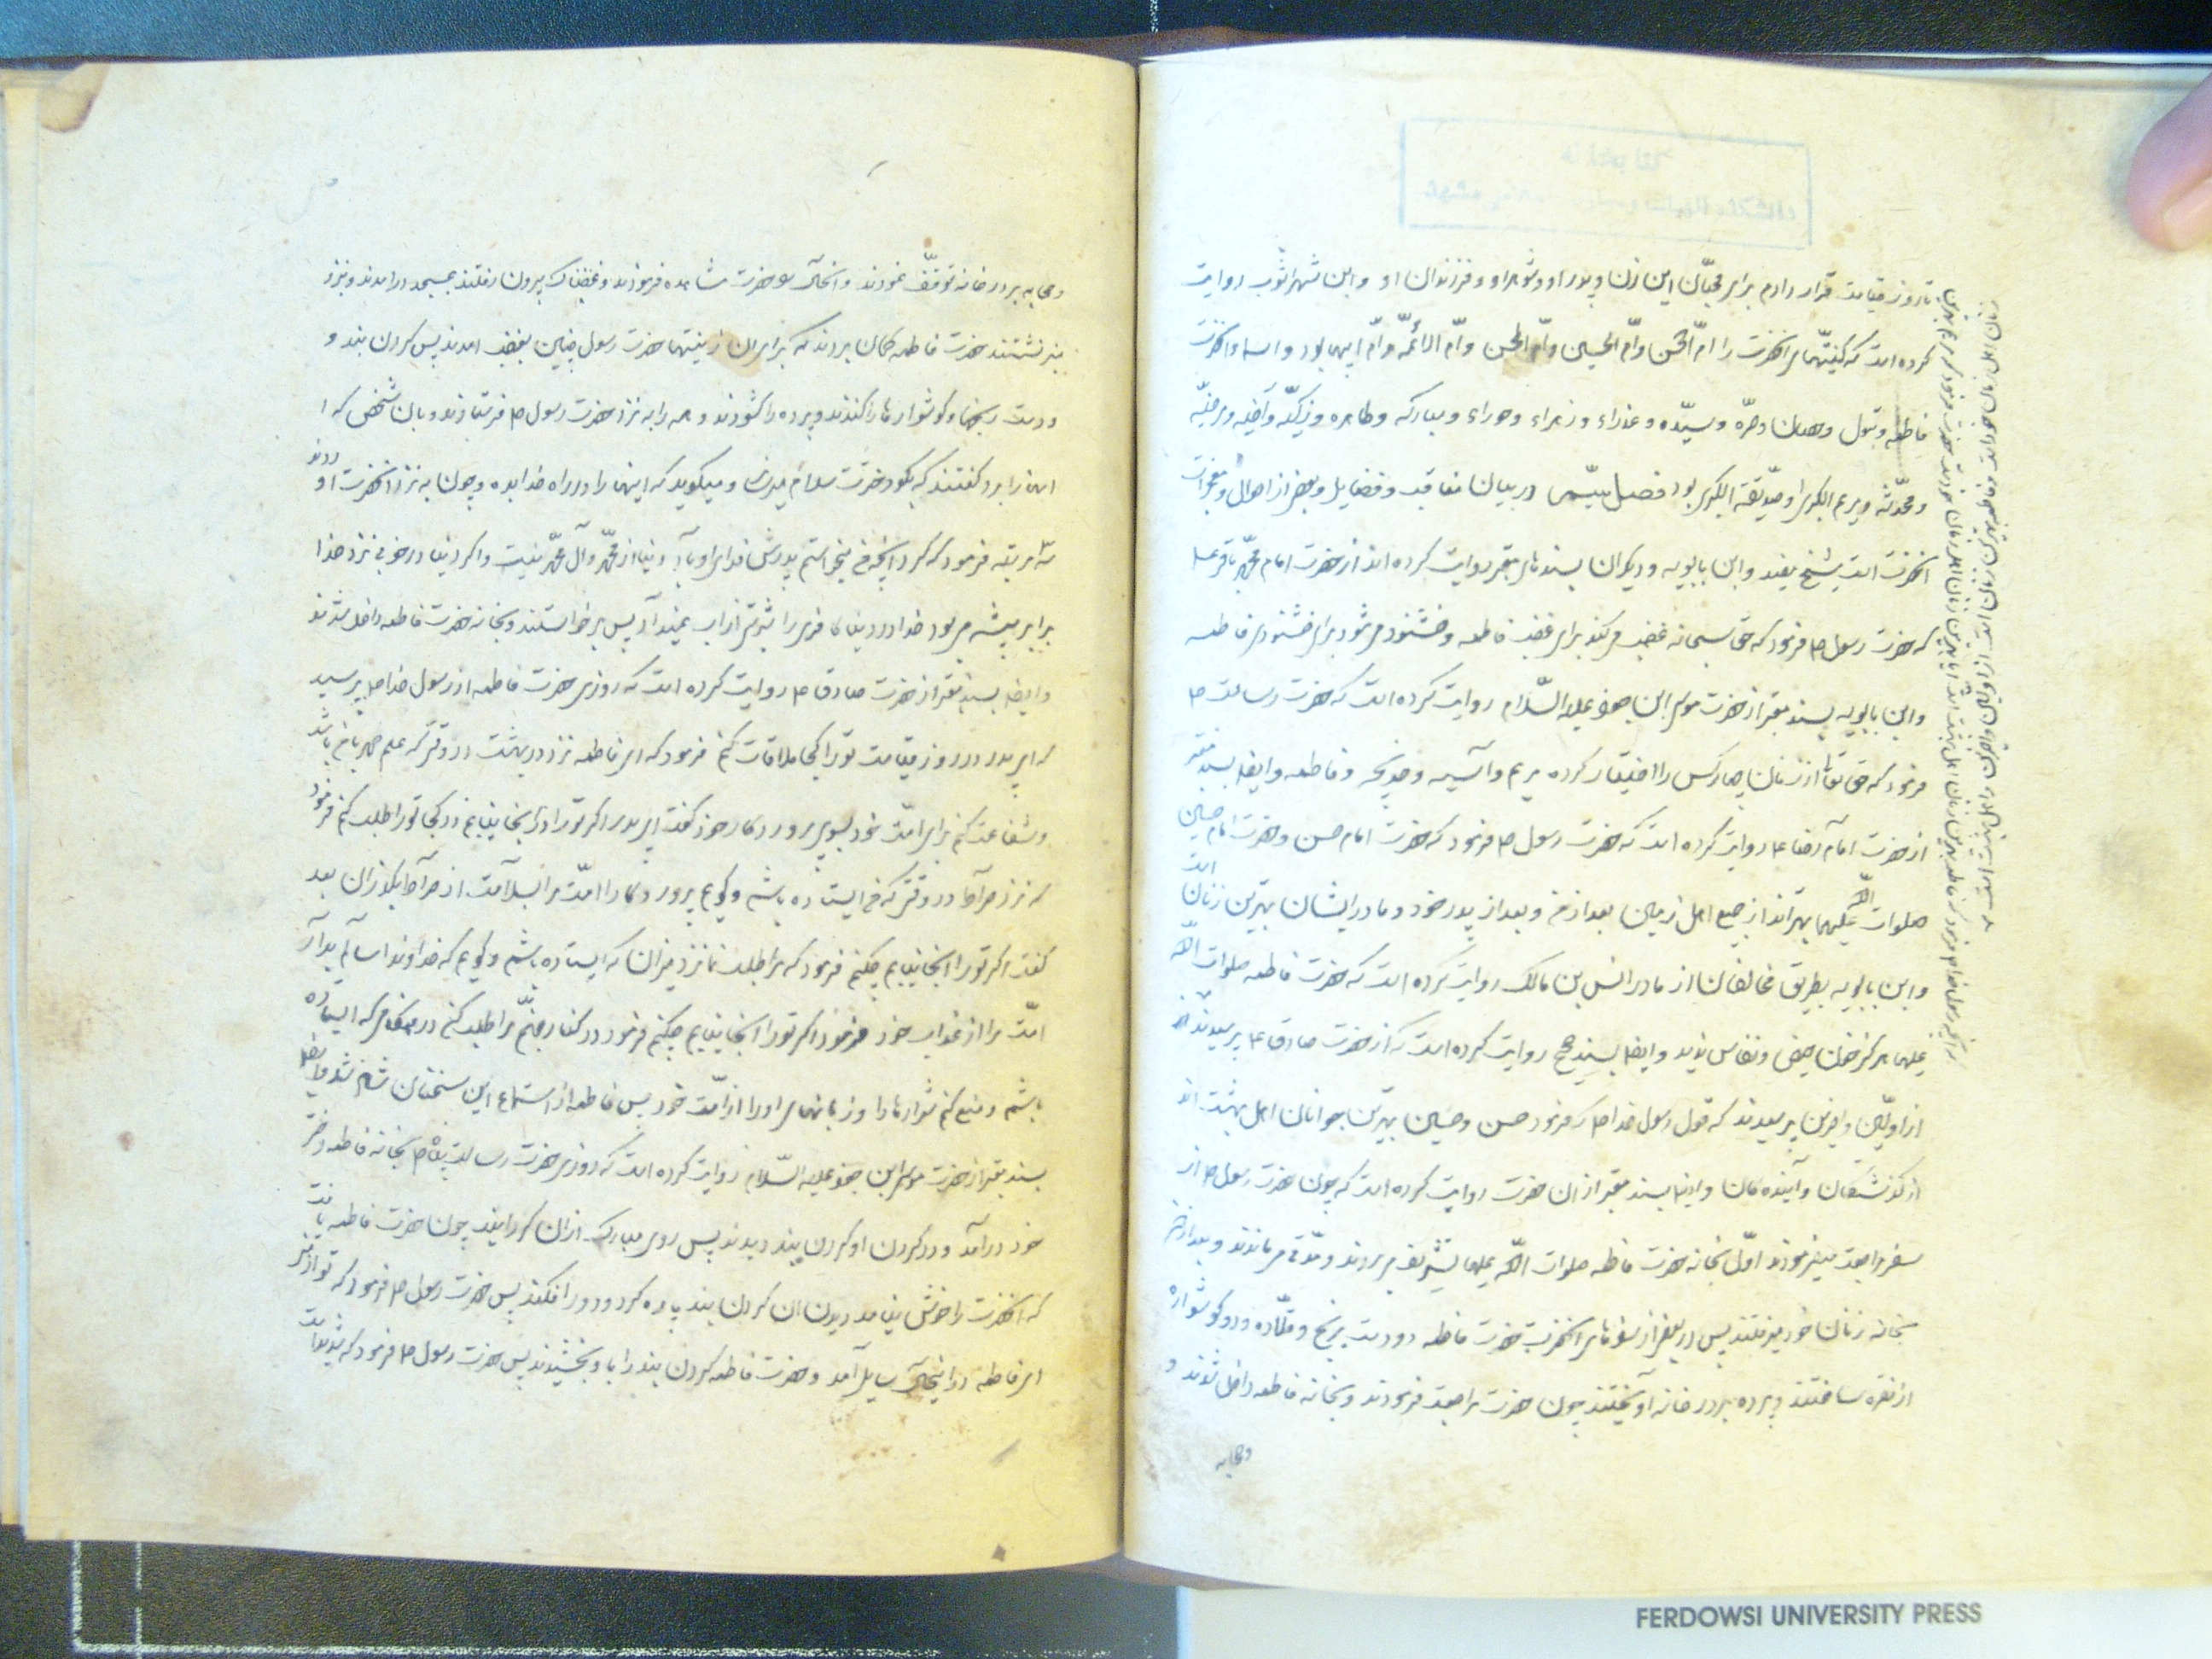 تا روز قیامت قرار دادم برای محبّان این زن و پدر او و شوهر او و فرزندان او و ابن شهر اشوب روایت
کرده است که کنیتهای انحضرت را امّ الحسن و امّ الحسین و امّ المحسن و امّ الأئمّه و امّ ابیها بود و اسماء انحضرت
فاطمه و بتول و حصان و حرّه و سیّده و عذراء و زهراء و حوراء و مبارکه و طاهره و زکیّه و راضیه و مرضیّه
و محدّثه و مریم الکبری و صدّیقة الکبری بود فصل سیّم در بیان مناقب و فضایل و بعضی از احوال و معجزات
انحضرت است شیخ مفید و ابن بابویه و دیکران بسندهای معتبر روایت کرده اند از حضرت امام محمّد باقر علیه
که حضرت رسول ص فرمود که حق سبحانه غضب میکند برای غضب فاطمه و خشنود میشود برای خشنودی فاطمه
و ابن بابویه بسند معتبر از حضرت موسی ابن جعفر علیه السّلام روایت کرده است که حضرت رسالت ص
فرمود که حق تعالی از زنان چهار کس را اختیار کرده مریم و آسیه و خدیجه و فاطمه و ایضا بسند معتبر
از حضرت امام رضا ع روایت کرده است که حضرت رسول ص فرمود که حضرت امام حسن و حضرت امام حسین
صلوات اللّه علیهما بهترند از جمیع اهل زمین بعد از من و بعد از پدر خود و مادر ایشان بهترین زنان است
و ابن بابویه بطریق مخالفان از مادر انس بن مالک روایت کرده است که حضرت فاطمه صلوات اللّه
علیها هرکز خون حیض و نفاس ندید و ایضا بسند صحیح روایت کرده است که از حضرت صادق ع پرسیدند
از اوّلین و اخرین پرسیدند که قول رسول خدا ص که فرمود حسن و حسین بهترین جوانان اهل بهشت اند
از کذشتکان و آیندکان و ایضا بسند معتبر از ان حضرت روایت کرده است که چون حضرت رسول ص از
سفر مراجعت میفرمودند اوّل بخانه حضرت فاطمه صلوات اللّه علیها تشریف میبردند و مدّتی میماندند و بعد از ان
بخانه زنان خود میرفتند پس در بعضی از سفرهای انحضرت حضرت فاطمه دو دست برنج و قلّاده و دو کوشواره
از نقره ساختند و پرده بر در خانه آویختند چون حضرت مراجعت فرمودند و بخانه فاطمه داخل شدند و
وصحابه
وصحابه بر در خانه توقّف نمودند و انحال حضرت مشاهده فرمودند و غضبناک بیرون رفتند بمسجد درامدند و بنزد
منبر نشستند حضرت فاطمه کمان بردند که برای ان زینتها حضرت رسول چنین بغضب امدند پس کردن بند و
و دست رنجها و کوشواره ها را کندند و پرده را کشودند و همه را به نزد حضرت رسول ص فرستادند و بان شخص که ا
انها را برد کفتند که بکو دخترت سلام میرساند و میکوید که اینها را در راه خدا بده و چون به نزد انحضرت اوردند
سه مرتبه فرمود که کرد انچه من میخواستم پدرش فدای او باد دنیا از محمّد و آل محمّد نیست و اکر دنیا در خوبی نزد خدا
برابر پشه میبود خدا در دنیا کافری را شربتی از اب نمیداد پس برخواستند و بخانه حضرت فاطمه داخل شدند
و ایضا بسند معتبر از حضرت صادق ع روایت کرده است که روزی حضرت فاطمه از رسول خدا ص پرسید
که ای پدر در روز قیامت تو را کجا ملاقات کنم فرمود که ای فاطمه نزد در بهشت در وقتی که علم حمد با من باشد
و شفاعت کنم برای امّت خود بسوی پروردکار خود کفت ای پدر اکر تو را در انجا نیابم در کجا تو را طلب کنم فرمود
که نزد صراط در وقتی که من ایستاده باشم و کویم پروردکارا امّت مرا بسلامت از صراط بکذران بعد
کفت اکر تو را انجا نیابم چکنم فرمود که مرا طلب نما نزد میزان که ایستاده باشم و کویم که خداوندا سالم بدار
امّت مرا از عذاب خود فرمود اکر تو را انجا نیابم چکنم فرمود در کنار جهنّم مرا طلب کنم در هنکامی که ایستاده
باشم و منع کنم شرارها و زبانهای او را از امّت خود پس فاطمه از استماع این سخنان شاد شد و ایضا
بسند معتبر از حضرت موسی ابن جعفر علیه السّلام روایت کرده است که روزی حضرت رسالت پناه ص بخانه فاطمه دختر
خود درآمد و در کردن او کردن بند دیدند پس روی مبارک از ان کردانید چون حضرت فاطمه یافت
که انحضرت را خوش نیامد دیدن ان کردن بند پاره کرد و دور افکند پس حضرت رسول ص فرمود که تو از منی
ای فاطمه در انحال سایل آمد و حضرت فاطمه کردن بند را باو بخشیدند پس حضرت رسول ص فرمود که شدید است
FERDOWSI UNIVERSITY PRESS